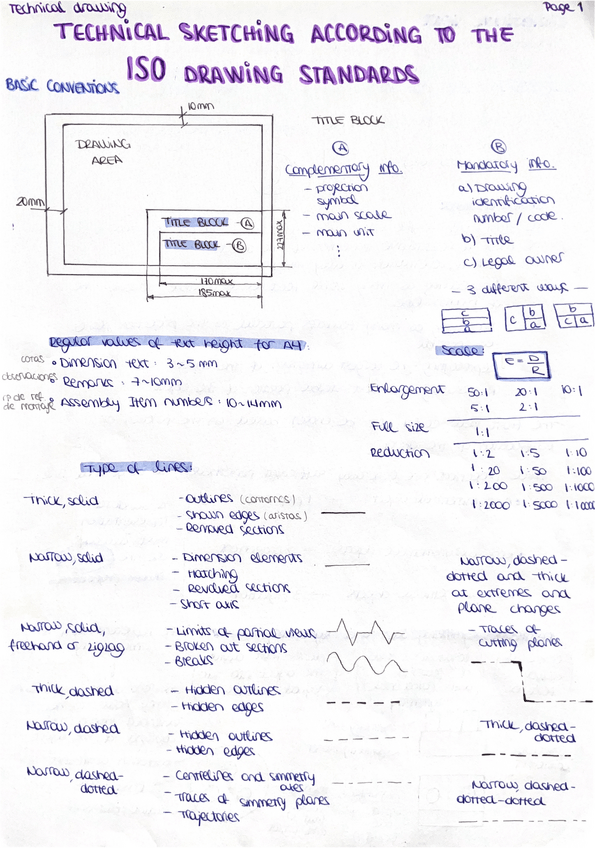 Technical drawing
Page 1
TECHNICAL SKETCHING ACCORDING TO THE
ISO DRAWING STANDARDS
BASIC CONVENTIONS
10mm
DRAWING
AREA
20mm
TITLE BLOCK - A
TITLE BLOCK - B
277max
170max
185max
TITLE BLOCK
A
Complementary info.
- projection
symbol
- main scale
- main unit
⋮
B
Mandatory info.
a) Drawing
identification
number / code.
b) Title
c) Legal owner
- 3 different ways -
c
b
a
c
b
a
b
c
a
Regular values of text height for A4:
cotas
• Dimension text: 3~5 mm
observaciones
• Remarks: 7~10mm
nº de ref.
de montaje
• Assembly Item numbers: 10~14mm
Scale:
e = D/R
Enlargement 50:1 20:1 10:1
5:1 2:1
Full size 1:1
Reduction 1:2 1:5 1:10
1:20 1:50 1:100
1:200 1:500 1:1000
1:2000 1:5000 1:10000
Type of lines:
Thick, solid
- Outlines (contornos)
- Shown edges (aristas)
- Removed sections
Narrow, solid
- Dimension elements
- Hatching
- Revolved sections
- Short axis
Narrow, solid,
freehand or zigzag
- Limits of partial views
- Broken out sections
- Breaks
Thick, dashed
- Hidden outlines
- Hidden edges
Narrow, dashed
- Hidden outlines
- Hidden edges
Narrow, dashed-
dotted
- Centrelines and symmetry
axes
- Traces of symmetry planes
- Trajectories
Narrow, dashed-
dotted and thick
at extremes and
plane changes
- Traces of
cutting planes
Thick, dashed-
dotted
Narrow, dashed-
dotted-dotted